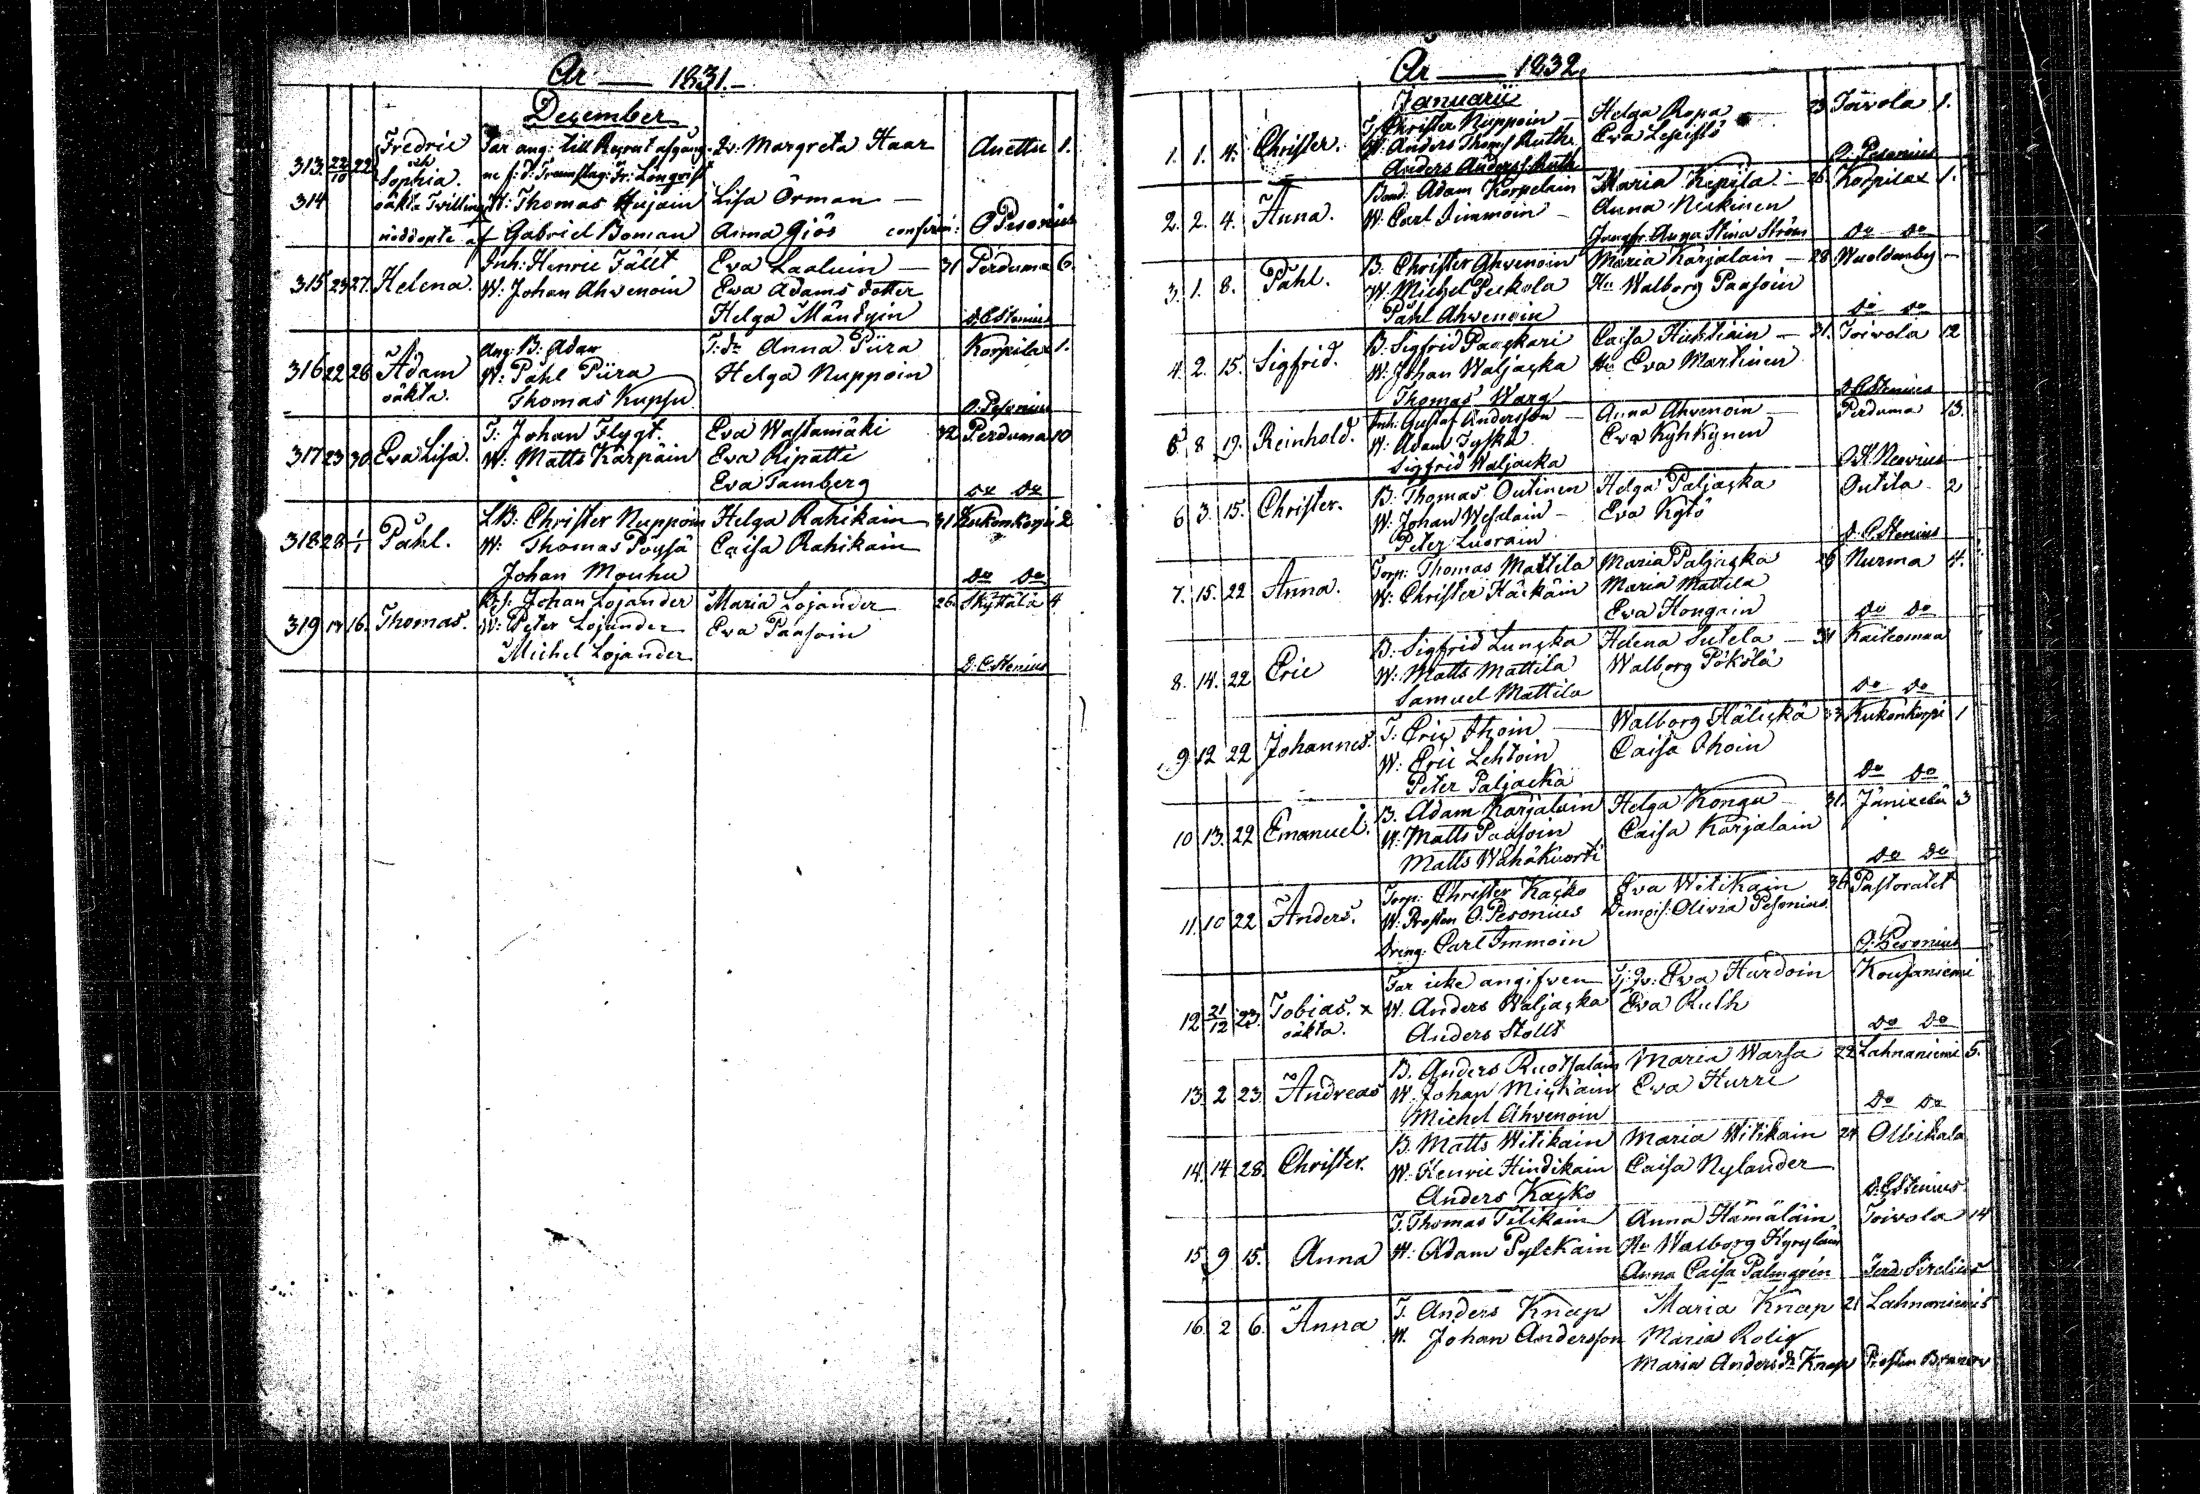 År — 1831.
December
313. 22/10 22 Fredric och Sophia. Far ang: till Rysvet afgång- Qv: Margreta Haar Anettu 1.
ne f: d: Trumslag: Fr: Lönqvist
314 oäkta Twillingar W: Thomas Hujain Lisa Örman —
nöddopte af Gabriel Boman Anna Giös confirm: O Pesonius
315 23 27. Helena. Inh: Henric Fällt Eva Laaluin — 31 Perduma 6.
W: Johan Ahvenoin Ewa Adams dotter
Helga Mändyin D. C. Stenius
316 22 26 Adam oäkta. Ang: B: Adan T: dr Anna Piira Korpilax 1.
W: Pahl Piira Helga Nuppoin
Thomas Kupsu O: Pesonius
317 23 30 Eva Lisa. T: Johan Flygt Eva Wastamäki 32 Perduma 10
W: Matts Karpain Eva Ripatti
Eva Tamberg Do Do
318 28 1/1 Påhl. LB: Christer Nuppoin Helga Rahikain 31 Kukonkorpi 2
W: Thomas Pöysä Caisa Rahikain
Johan Mouhu Do Do
319 14 16. Thomas. Johan Lojander Maria Lojander 26. Skyttälä 4
W: Peter Lojander Eva Paasoin
Michel Lojander D. C. Stenius
År — 1832.
Januarii
1. 1. 4. Christer. Christer Nuppoin — Helga Ropa 23 Toivola 1.
W: Anders Thoms. Ruth Eva Lepistö
Anders Anders s. Ruth O: Pesonius
2. 2. 4. Anna. Bond. Adam Korpelain Maria Kepila — 26. Korpilax 1.
W: Carl Immoin — Anna Neskinen
Jungfr. Anna Stina Ström Do Do
3. 1. 8. Påhl. B: Christer Ahvenoin Maria Karjalain — 28 Wuoldenby —
W: Michel Peskola Hu Walborg Paasoin
Påhl Ahvenoin Do Do
4. 2. 15. Sigfrid. B: Sigfrid Paaskari Caisa Huhtiain — 31. Toivola 12
W: Johan Waljacka Hu Eva Martinen
Thomas Warg D. C. Stenius
5 8 19. Reinhold. Inh: Gustaf Andersson — Anna Ahvenoin Perduma 13.
W: Adam Tyska Eva Kyhkynen
Sigfrid Waljacka O. H. Nervius
6 3. 15. Christer. B: Thomas Outinen Helga Paljacka Outila 2
W: Johan Wesalain — Eva Kytö
Peter Luorain D. C. Stenius
7. 15. 22 Anna. Torp: Thomas Mattila Maria Paljacka 26 Nurma 4.
W: Christer Härkäin Maria Mattila
Eva Hongain Do Do
8. 14. 22 Eric B: Sigfrid Lunska Helena Sutela — 31 Kaiteomaa
W: Matts Mattila Walborg Pökölä
Samuel Mattila Do Do
9 12 22 Johannes. T: Eric Ihoin Walborg Häliskä 33 Kukonkorpi 1
W: Eric Lehtoin Caisa Ihoin
Peter Paljacka Do Do
10 13. 22 Emanuel. B. Adam Karjalain Helga Kongu 31. Jänixelä 3
W: Matts Paasoin Caisa Karjalain
Matts Wähäkuorti Do Do
11. 10 22 Anders. Torp: Christer Kacko Eva Witikain 36 Pastoratet
W: Prosten O. Pesonius Demois: Olivia Pesonius
Dreng: Carl Immoin O. Pesonius
12 21/12 23. Tobias. × oäkta. Far icke angifven T: Qv: Eva Hardoin Kousaniemi
W: Anders Waljacka Eva Ruth
Anders Stollt Do Do
13. 2 23 Andreas B. Anders Ruotsalain Maria Warsa 22 Lahnaniemi 5.
W. Johan Mickäin Eva Kurri
Michel Ahvenoin Do Do
14. 14 28. Christer. B. Matts Witikain Maria Witikain 24 Ollikala
W: Henric Hindikain Caisa Nylander
Anders Kacko D. C. Stenius
15 9 15. Anna T. Thomas Tilikain Anna Hämäläin Toivola 14
W: Adam Pylckäin Hu Walborg Kyrylain
Anna Caisa Palmqvin Ferd. Sirelius
16 2 6. Anna T. Anders Knap Maria Knap 21 Lahnaniemi 5
W. Johan Andersson Maria Rolig
Maria Anders dr Knap Prosten